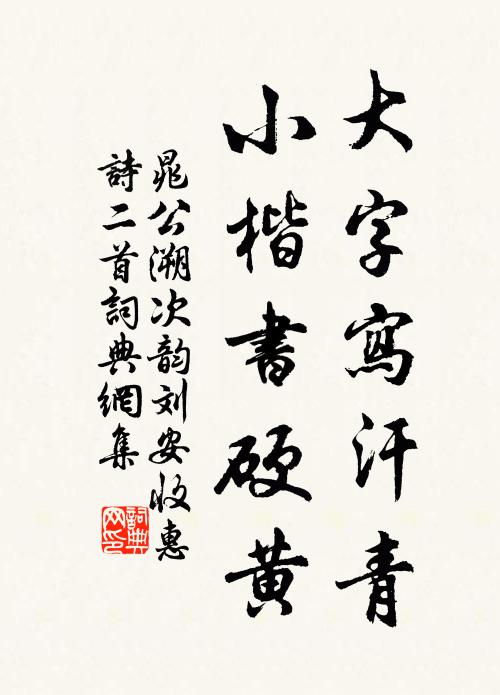 大字寫汗青
小楷書硬黃
晁公溯次韵刘安收惠
詩二首詞典網集
詞典
网印